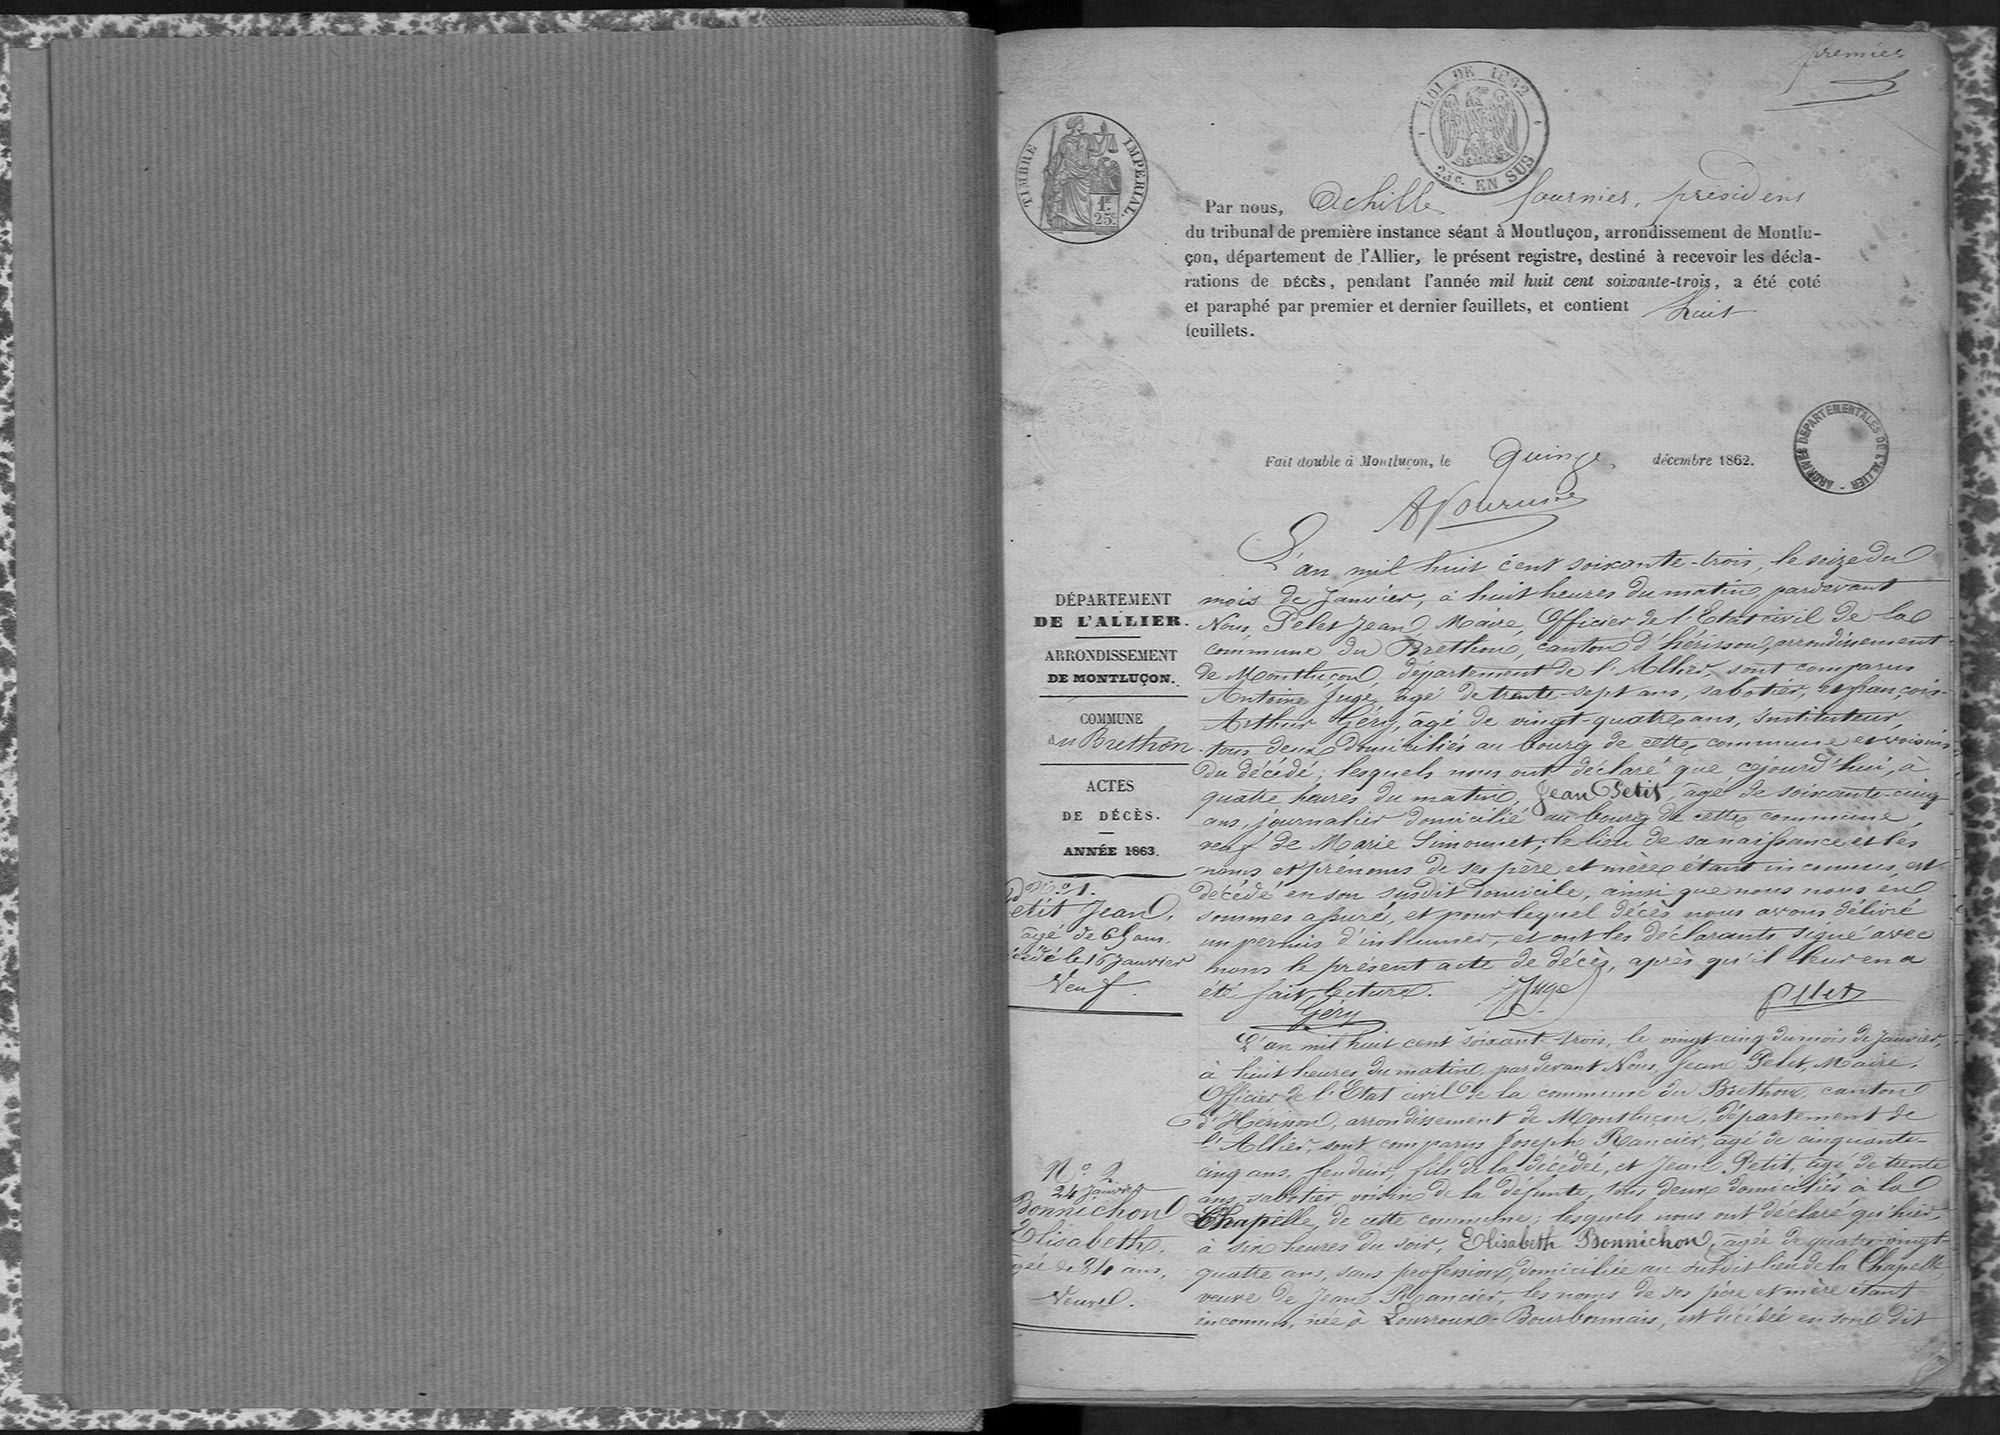 premier
LOI DE 1862
25c. EN SUS
TIMBRE IMPERIAL
1F
25c
Par nous, Achille fournier, président
du tribunal de première instance séant à Montluçon, arrondissement de Montlu-
çon, département de l'Allier, le présent registre, destiné à recevoir les décla-
rations de DÉCÈS, pendant l'année mil huit cent soixante-trois, a été coté
et paraphé par premier et dernier feuillets, et contient huit
feuillets.
ARCHIVES DEPARTEMENTALES DE L'ALLIER
Fait double à Montluçon, le quinze décembre 1862.
AFournier
DÉPARTEMENT
DE L'ALLIER.
ARRONDISSEMENT
DE MONTLUÇON.
COMMUNE
du Brethon
ACTES
DE DÉCÈS.
ANNÉE 1863.
L'an mil huit cent soixante-trois, le seize du
mois de Janvier, à huit heures du matin, pardevant
Nous, Pelet Jean, Maire, Officier de l'Etat civil de la
commune du Brethon, canton d'hérisson, arrondissement
de Montluçon, département de l'Allier, sont comparus
Antoine Juge, âgé de trente-sept ans, sabotier, et françois-
Arthur Géry, âgé de vingt-quatre ans, Instituteur,
tous deux domiciliés au bourg de cette commune et voisins
du décédé; lesquels nous ont déclaré que cejourd'hui, à
quatre heures du matin, Jean Petit, âgé de soixante-cinq
ans, journalier domicilié au bourg de cette commune,
veuf de Marie Simonnet; le lieu de sa naissance et les
noms et prénoms de ses père et mère étant inconnus, est
décédé en son susdit domicile, ainsi que nous nous en
sommes assuré, et pour lequel décès nous avons délivré
un permis d'inhumer, et ont les déclarants signé avec
nous le présent acte de décès, après qu'il leur en a
été fait lecture. Juge Pelet
Géry
N° 1.
etit Jean,
âgé de 65 ans.
écédé le 16 janvier
Veuf.
L'an mil huit cent soixant-trois, le vingt-cinq du mois de janvier,
à huit heures du matin, pardevant Nous, Jean Pelet, Maire,
Officier de l'Etat civil de la commune du Brethon, canton
d'Hérisson, arrondissement de Montluçon, département de
l'Allier, sont comparus Joseph Rancier, âgé de cinquante-
cinq ans, fendeur, fils de la décédée, et Jean Petit, âgé de trente
ans, sabotier voisin de la défunte, tous deux domiciliés à la
Chapelle, de cette commune; lesquels nous ont déclaré qu'hier
à six heures du soir, Elisabeth Bonnichon, âgée de quatre-vingt-
quatre ans, sans profession, domiciliée au susdit lieu de la Chapelle,
veuve de Jean Rancier, les noms de ses père et mère étant
inconnus, née à Louroux-Bourbonnais, est décédée en son dit
N° 2.
24 janvier
Bonnichon
Elisabeth,
gée de 84 ans,
Veuve.